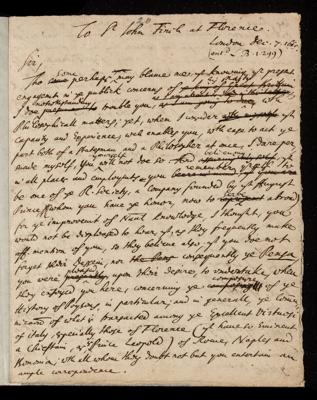 To Sr John Finch at Florence.
London Dec. 7. 166
entd B. 1. 249)
Sir,
Tho some perhaps may blame me, yt knowing ye present
engagemt in ye publick concerns of
notwithstanding trouble you, wth
Philosophicall matters; yet, when I consider yt
Capacity and Experience, wch enables you, with ease to act ye
part both of a Statesman and a Philosopher at once, I dare per
made myself, you will not doe so. And
in all places and employmts, you yourself to
be one of ye R. Society, a Company founded by yt August
Prince, whom you have ye honor now to abroad,
for ye improvement of Natul knowledge, I thought, you
would not be displeased to hear, yt, as they frequently make
mention of you, so they believe also, yt you doe not
forget their Dessein, nor consequently ye Pensa
you were pleased, upon their desire, to undertake, when
they enjoyed you here, concerning ye composing of ye
History of Poysons in particular; and in generall, ye Comu
nicaon of what is transacted among ye Excellent Virtuosi
of Italy, especially those of Florence (yt have so Eminent
a Chieftain, as Prince Leopold) of Rome, Naples and
Bononia; wth all whom they doubt not but you entertain an
ample correspondence.